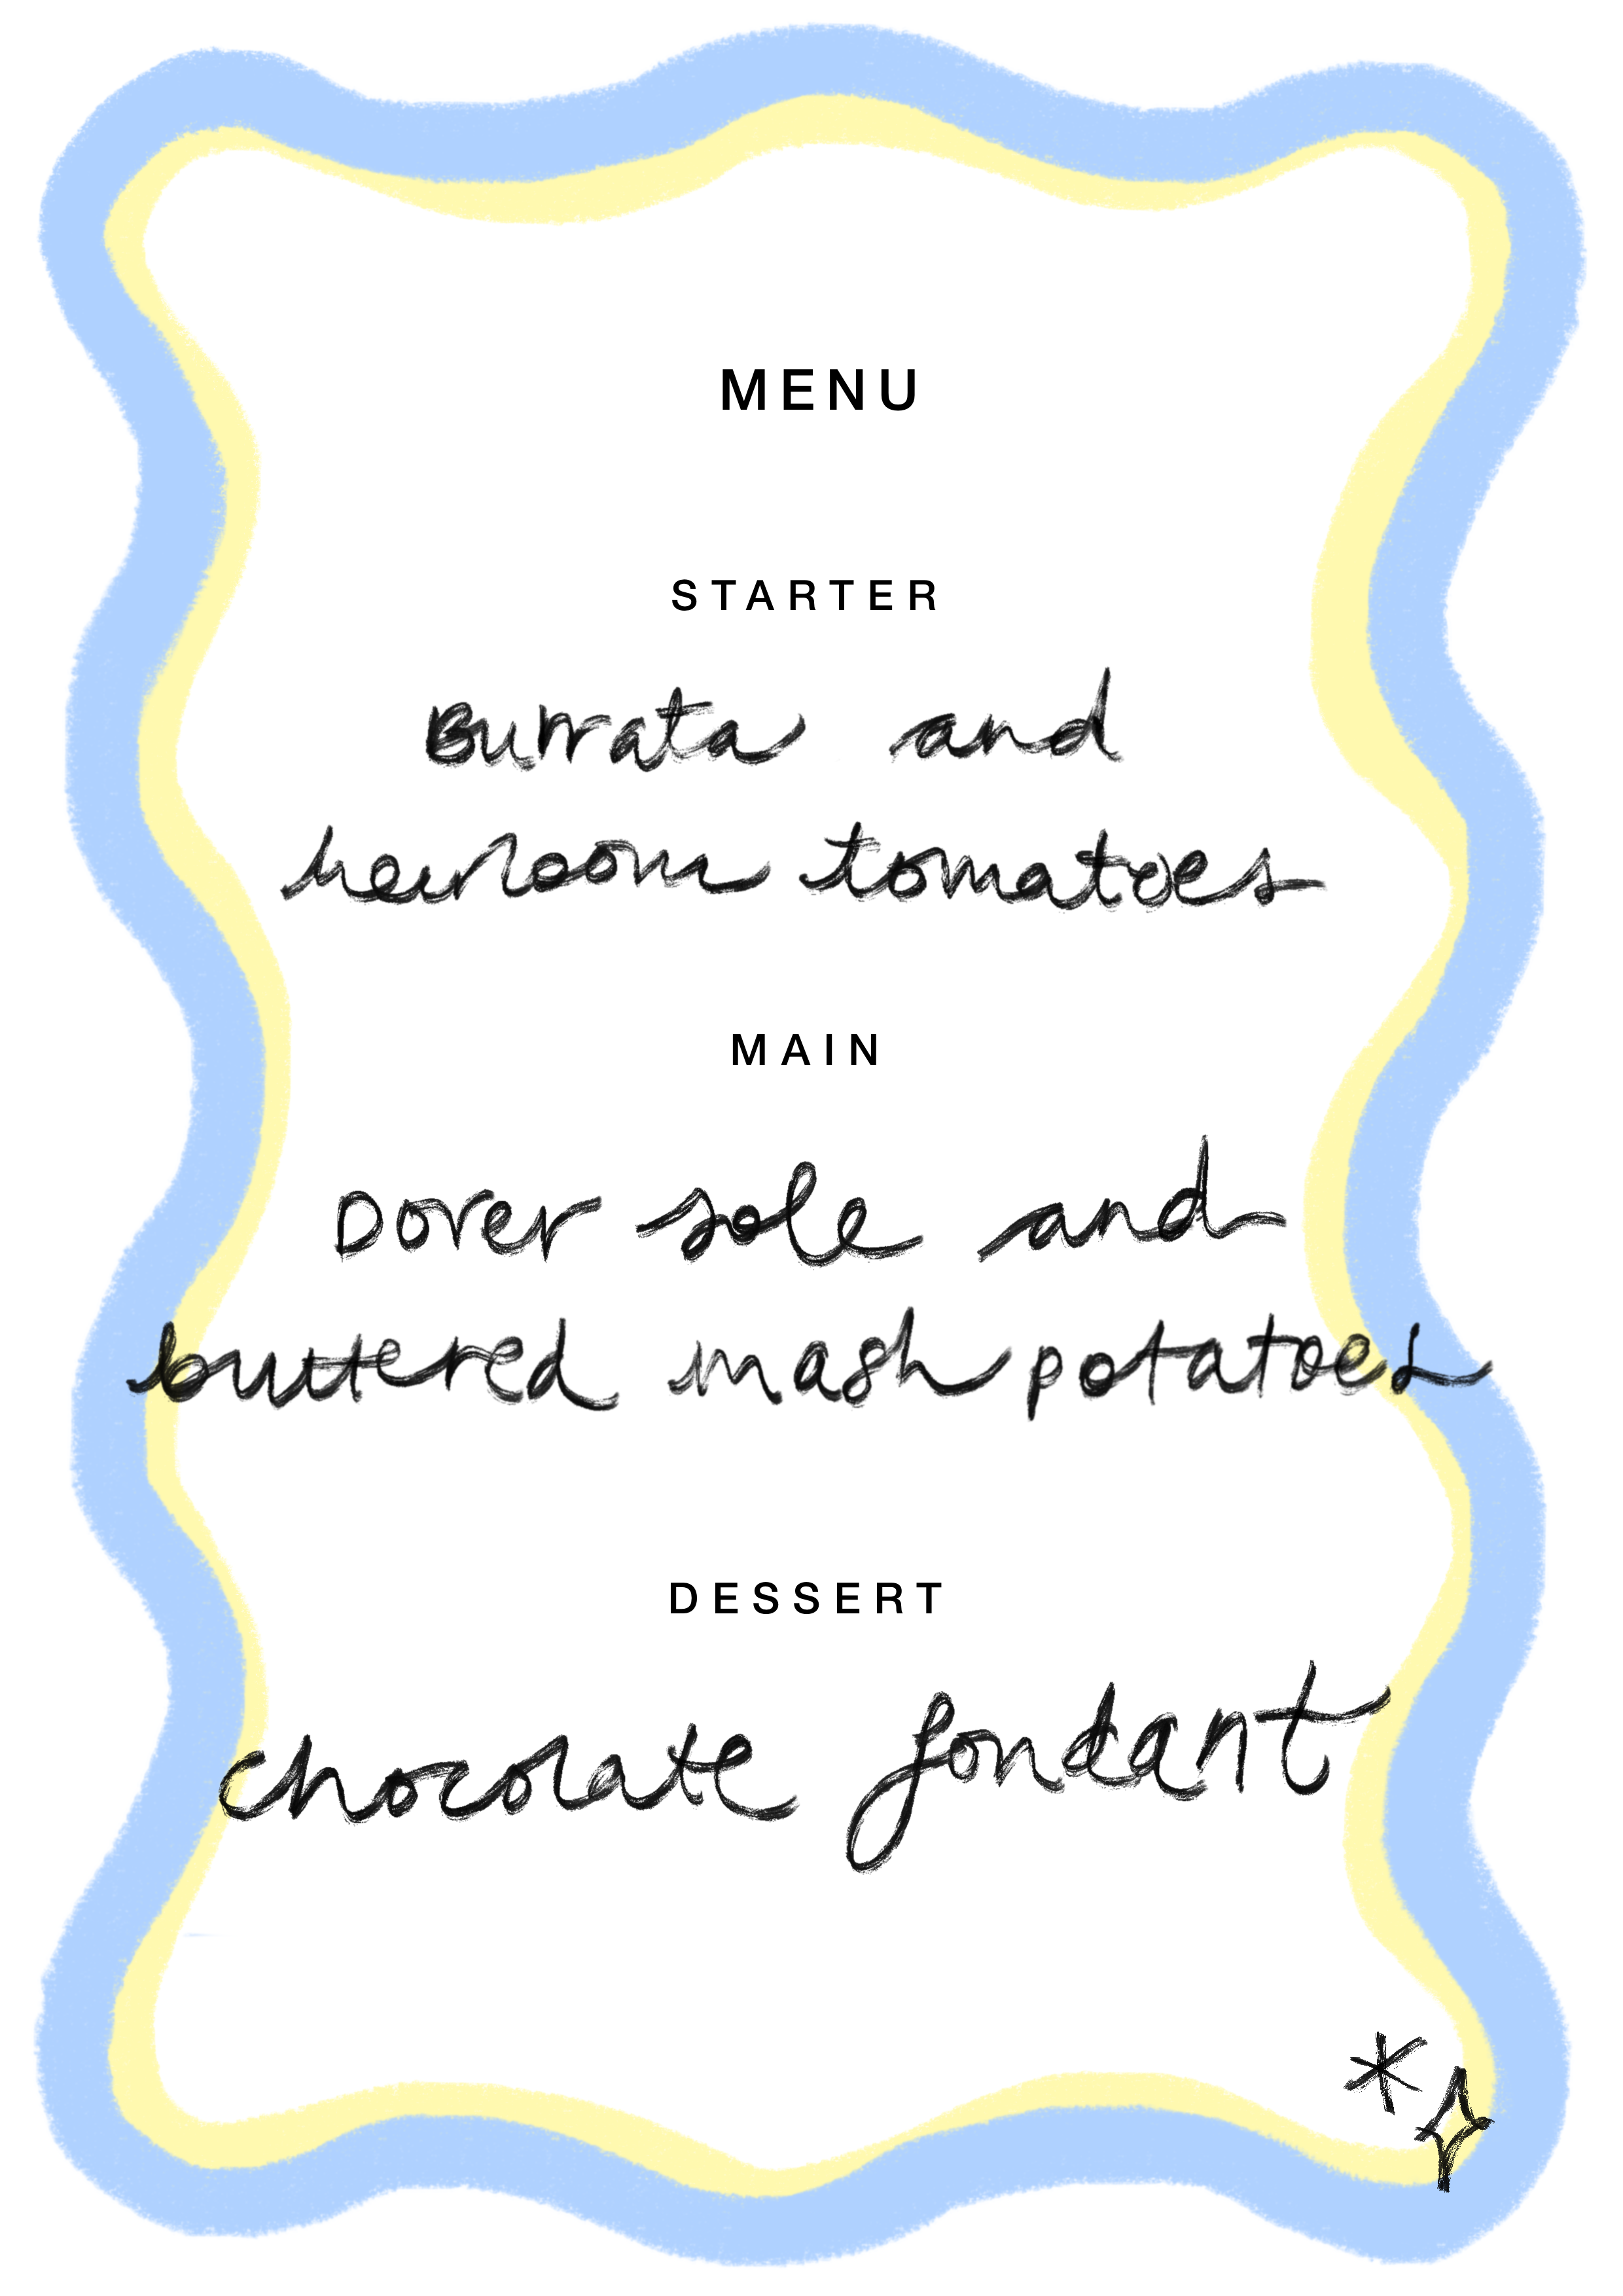 MENU
STARTER
Burrata and
heirloom tomatoes
MAIN
Dover sole and
buttered mash potatoes
DESSERT
chocolate fondant